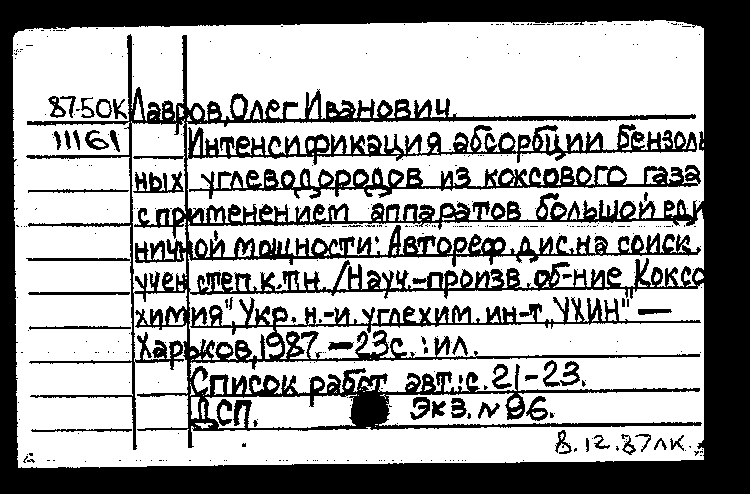 87-50К Лавров, Олег Иванович.
11161 Интенсификация абсорбции бензоль
ных углеводородов из коксового газа
с применением аппаратов большой еди
ничной мощности: Автореф. дис. на соиск.
учен степ. к.т.н. /Науч.-произв. об-ние „Коксо
химия", Укр. н.-и. углехим. ин-т „УХИН" —
Харьков, 1987. — 23с. : ил.
Список работ авт.: с. 21-23.
ДСП. Экз. № 96.
8.12.87 ЛК.